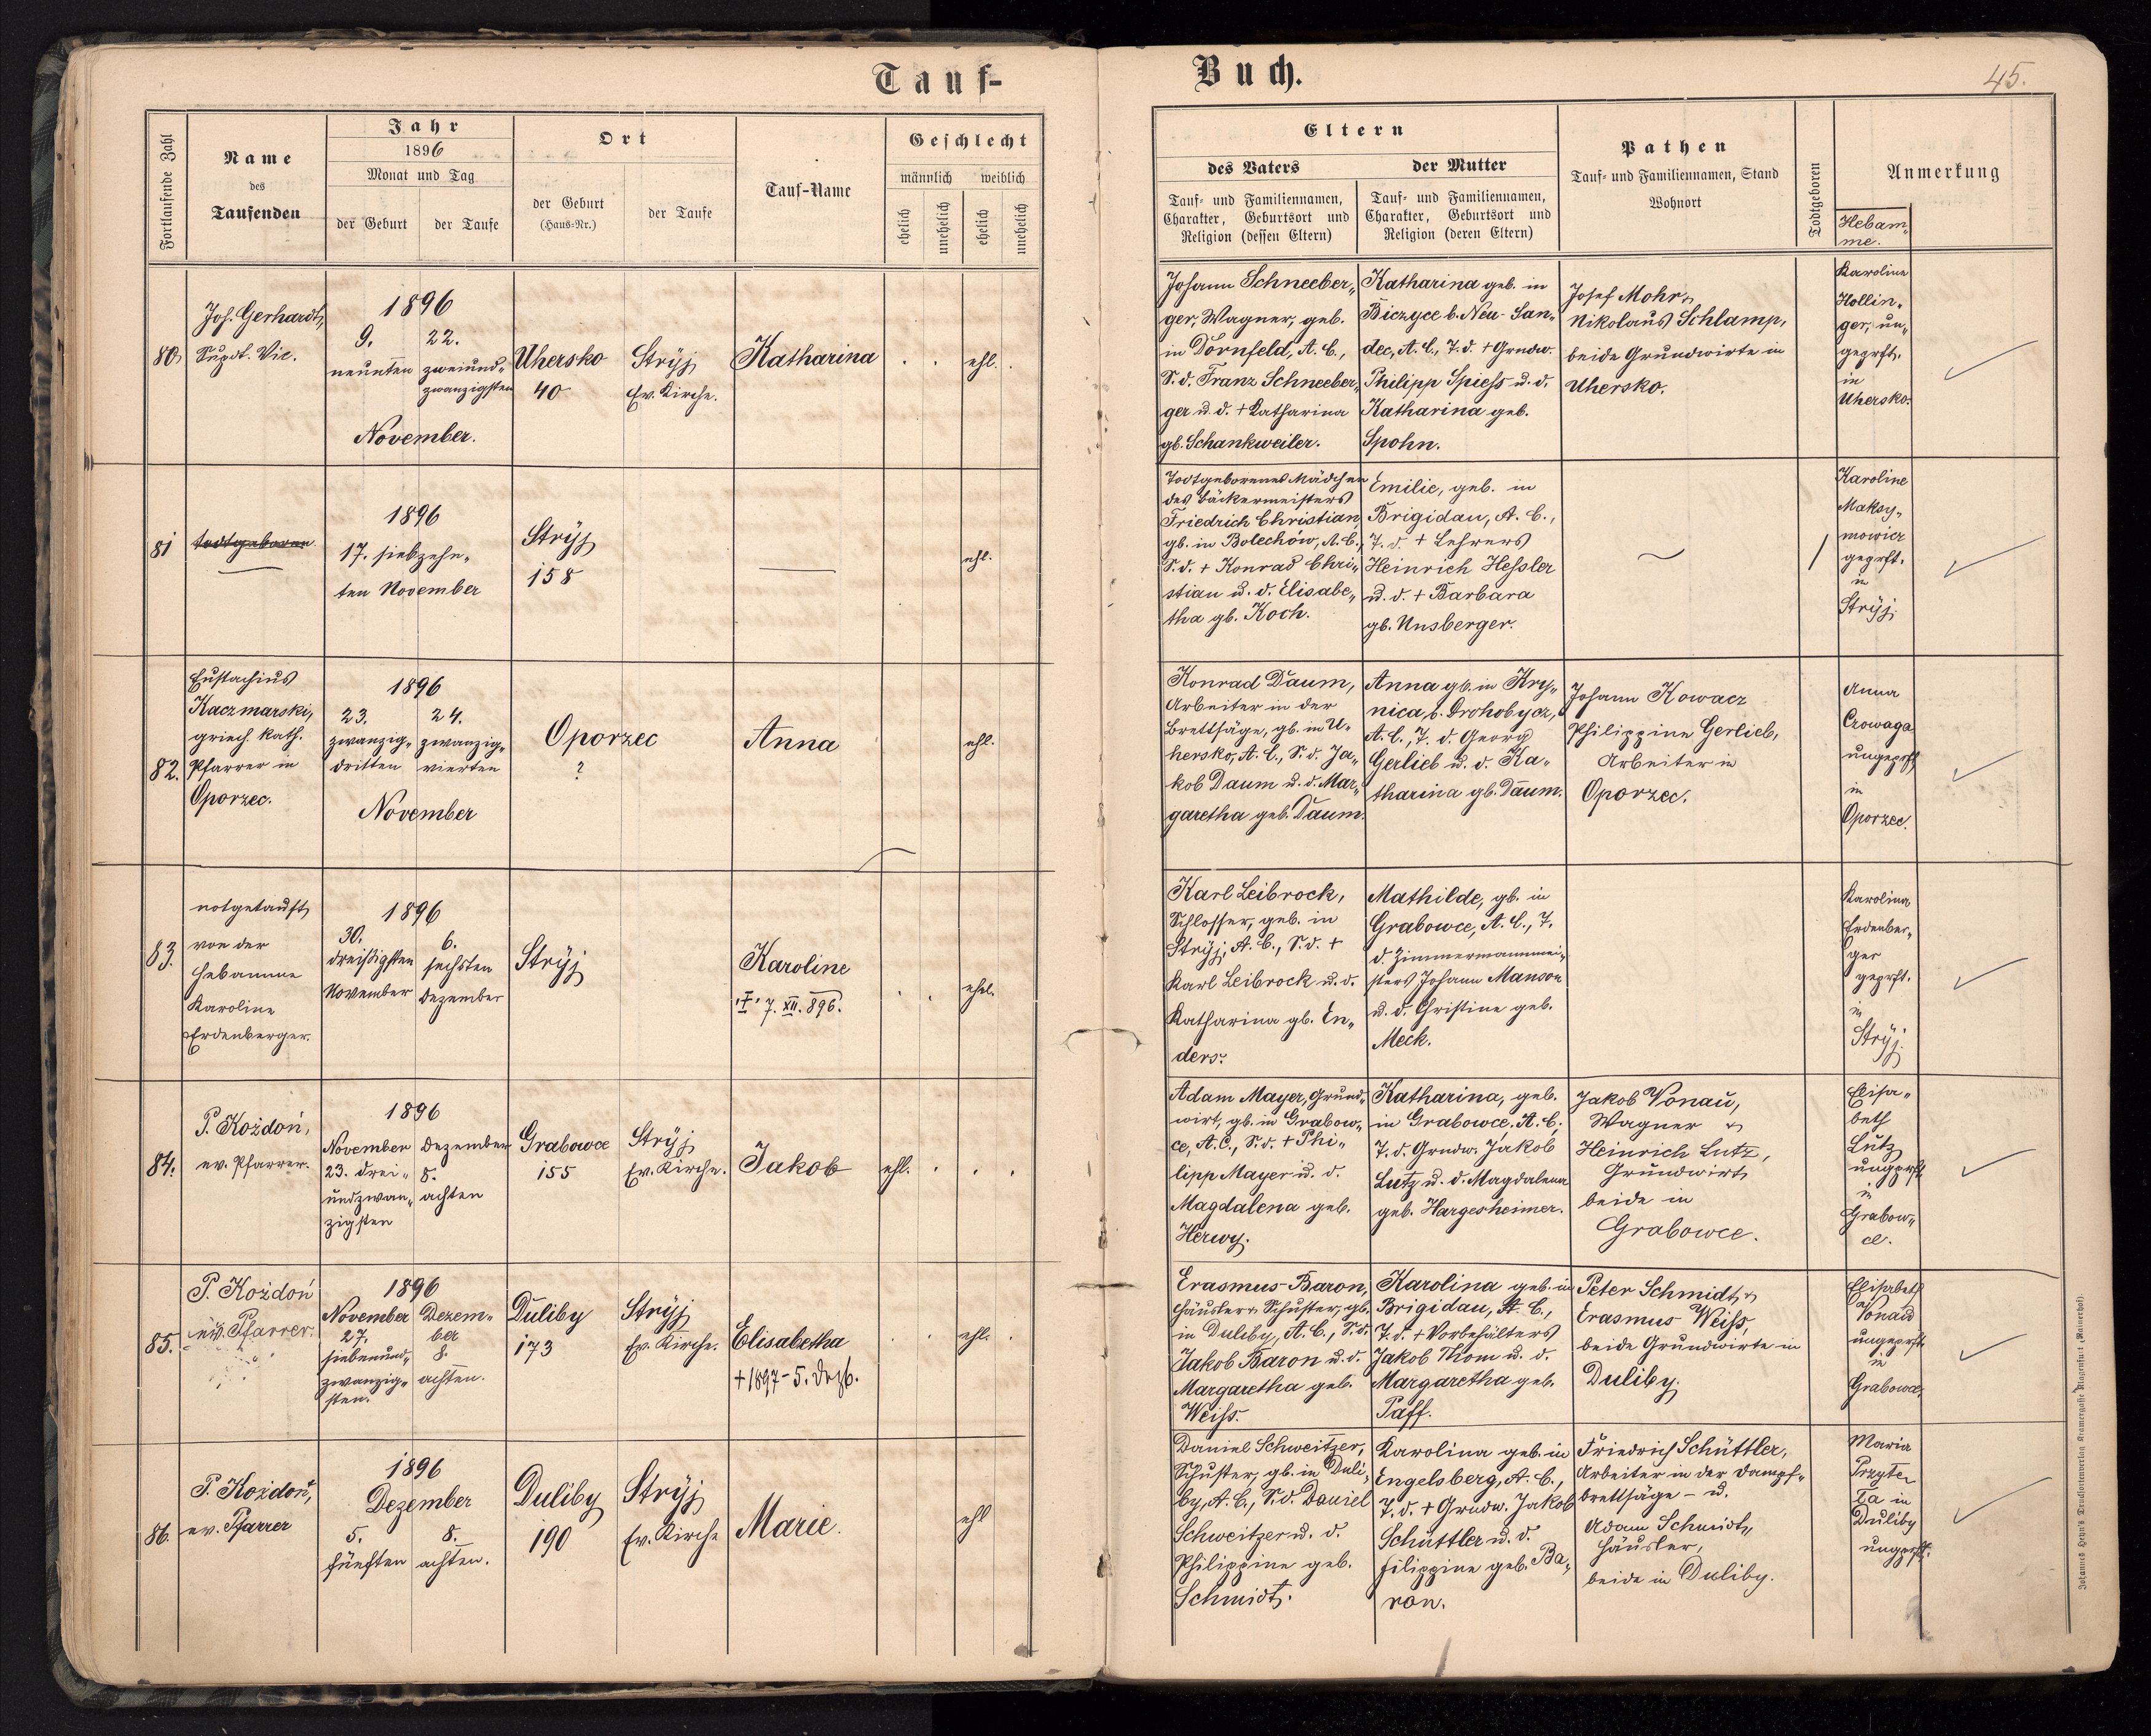 Tauf-
Buch.
45.
Fortlaufende Zahl
Name
des
Taufenden
Jahr
1896
Monat und Tag
der Geburt
der Taufe
Ort
der Geburt
(Haus-Nr.)
der Taufe
Tauf-Name
Geschlecht
männlich
weiblich
ehelich
unehelich
ehelich
unehelich
Eltern
des Vaters
Tauf- und Familiennamen,
Charakter, Geburtsort und
Religion (dessen Eltern)
der Mutter
Tauf- und Familiennamen,
Charakter, Geburtsort und
Religion (deren Eltern)
Pathen
Tauf- und Familiennamen, Stand
Wohnort
Todtgeboren
Anmerkung
Hebam„
me.
80
Joh. Gerhardt,
Supdt. Vic.
1896
9.
neunten
22.
zweiund„
zwanzigsten
November.
Uhersko
40
Stryj
Ev. Kirche.
Katharina
ehl.
Johann Schneeber„
ger, Wagner, geb.
in Dornfeld, A. C.,
S. d. Franz Schneeber„
ger u. d. + Katharina
gb. Schankweiler.
Katharina geb. in
Biczyce b. Neu-San„
dec, A. C., T. d. + Grndw.
Philipp Spiess u. d.
Katharina geb.
Spohn.
Josef Mohr,
Nikolaus Schlamp,
beide Grundwirte in
Uhersko.
Karoline
Hollin„
ger, un„
geprft.
in
Uhersko.
81
todtgeboren
1896
17. siebzehn„
ten November
Stryj
158
ehl.
Todtgeborenes Mädchen
des Bäckermeisters
Friedrich Christian,
gb. in Bolechów, A. C.,
S. d. + Konrad Chri„
stian u. d. Elisabe„
tha gb. Koch.
Emilie, geb. in
Brigidau, A. C.,
T. d. + Lehrers
Heinrich Hessler
u. d. + Barbara
gb. Unsberger.
Karoline
Maksy„
mowicz
geprft.
in
Stryj.
82.
Eustachius
Kaczmarski,
griech. kath.
Pfarrer in
Oporzec.
1896
23.
zwanzig„
dritten
24.
zwanzig„
vierten
November
Oporzec
?
Anna
ehl.
Konrad Daum,
Arbeiter in der
Brettsäge, gb. in U-
hersko, A. C., S. d. Ja„
kob Daum u. d. Mar„
garetha geb. Daum.
Anna gb. in Kry„
nica, b. Drohobycz,
A. C., T. d. Georg
Gerlieb u. d. Ka„
tharina gb. Daum.
Johann Kowacz
Philippine Gerlieb,
Arbeiter in
Oporzec.
Anna
Czowaga
ungeprft
in
Oporzec.
83.
notgetauft
von der
Hebamme
Karoline
Erdenberger.
1896
30.
dreißigsten
November
6.
sechsten
Dezember
Stryj
Karoline
7. XII. 896.
ehel.
Karl Leibrock,
Schlosser, geb. in
Stryj, A. C., S. d. +
Karl Leibrock u. d.
Katharina gb. En„
ders.
Mathilde, gb. in
Grabowce, A. C., T.
d. Zimmermannmei„
sters Johann Manson
u. d. Christine geb.
Meck.
Karolina
Erdenber„
ger
geprft.
in
Stryj.
84.
P. Kożdoń,
ev. Pfarrer.
1896
November
23. drei„
undzwan„
zigsten
Dezember
8.
achten
Grabowce
155
Stryj
Ev. Kirche.
Jakob
ehl.
Adam Mayer, Grund„
wirt, gb. in Grabow„
ce, A. C., S. d. + Phi„
lipp Mayer u. d.
Magdalena geb.
Herwy.
Katharina, geb.
in Grabowce, A. C.,
T. d. Grndw. Jakob
Lutz u. d. Magdalena
geb. Hargesheimer.
Jakob Vonau,
Wagner &
Heinrich Lutz,
Grundwirt,
beide in
Grabowce.
Elisa„
beth
Lutz
ungeprft
in
Grabow„
ce.
85.
P. Kożdoń
ev. Pfarrer.
1896
November
27.
siebenund„
zwanzig„
sten.
Dezem„
ber
8.
achten.
Duliby
173
Stryj
Ev. Kirche.
Elisabetha
+ 1897 - 5. Dezb.
ehl.
Erasmus Baron,
Häusler u. Schuster, gb.
in Duliby, A. C., S. d.
Jakob Baron u. d.
Margaretha geb.
Weiss.
Karolina geb. in
Brigidau, A. C.,
T. d. + Vorbehälters
Jakob Thom u. d.
Margaretha geb.
Paff.
Peter Schmidt, &
Erasmus Weiss,
beide Grundwirte in
Duliby.
Elisabeth
Vonau
ungeprft.
in
Grabowce.
86.
P. Kożdoń,
ev. Pfarrer
1896
Dezember
5.
fünften
8.
achten.
Duliby
190
Stryj
Ev. Kirche
Marie.
ehl
Daniel Schweitzer,
Schuster, gb. in Duli„
by, A. C., S. d. Daniel
Schweitzer u. d.
Philippine geb.
Schmidt.
Karolina geb. in
Engelsberg, A. C.,
T. d. + Grndw. Jakob
Schüttler u. d.
Filippine geb. Ba„
ron.
Friedrich Schüttler,
Arbeiter in der Dampf„
brettsäge - u.
Adam Schmidt,
Häusler,
beide in Duliby.
Maria
in
Duliby
ungprft.